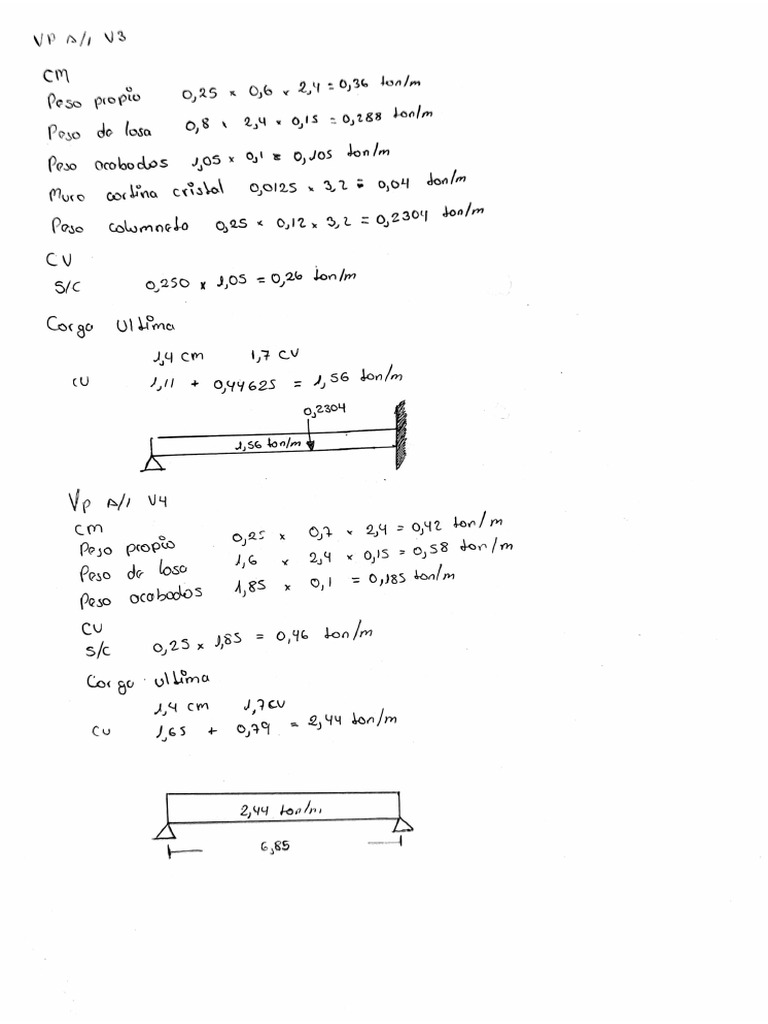 VP A/1 V3
CM
Peso propio 0,25 x 0,6 x 2,4 = 0,36 ton/m
Peso de losa 0,8 x 2,4 x 0,15 = 0,288 ton/m
Peso acabados 1,05 x 0,1 = 0,105 ton/m
Muro cortina cristal 0,0125 x 3,2 = 0,04 ton/m
Peso columneta 0,25 x 0,12 x 3,2 = 0,2304 ton/m
CV
S/C 0,250 x 1,05 = 0,26 ton/m
Carga Ultima
1,4 cm 1,7 CV
CU 1,11 + 0,44625 = 1,56 ton/m
0,2304
1,56 ton/m
Vp A/1 V4
CM
Peso propio 0,25 x 0,7 x 2,4 = 0,42 ton/m
Peso de losa 1,6 x 2,4 x 0,15 = 0,58 ton/m
Peso acabados 1,85 x 0,1 = 0,185 ton/m
CV
S/C 0,25 x 1,85 = 0,46 ton/m
Carga ultima
1,4 cm 1,7 CV
CU 1,65 + 0,79 = 2,44 ton/m
2,44 ton/m
6,85